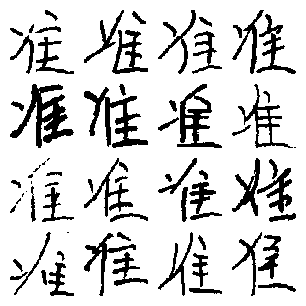 准准准准
准准准准
准准准准
准准准准